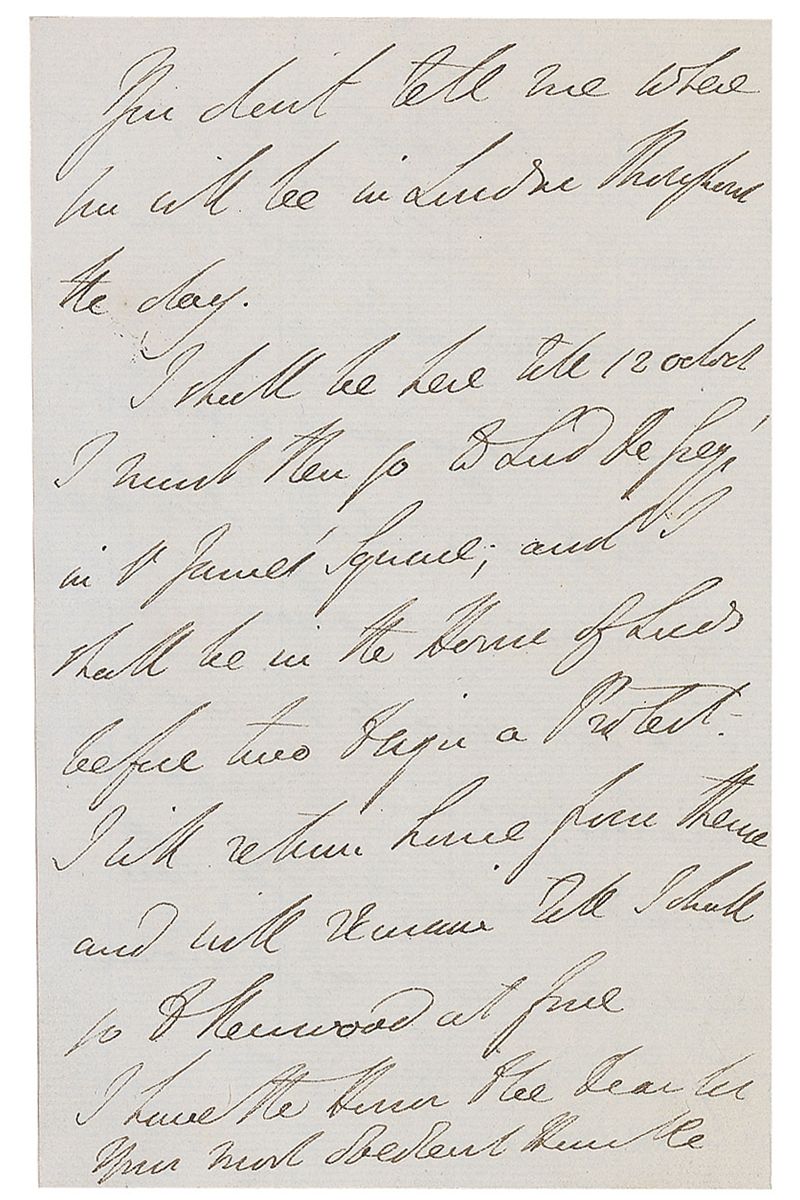 You don't tell me where
you will be in London throughout
the day.
I shall be here till 12 oclock
I must then go to Lord de Grey's
in St James' Square; and I
shall be in the House of Lords
before two to sign a Protest.
I will return home from thence
and will remain till I shall
go to Kenwood at five
I have the Honor to be Dear Sir
Your most obedient Humble